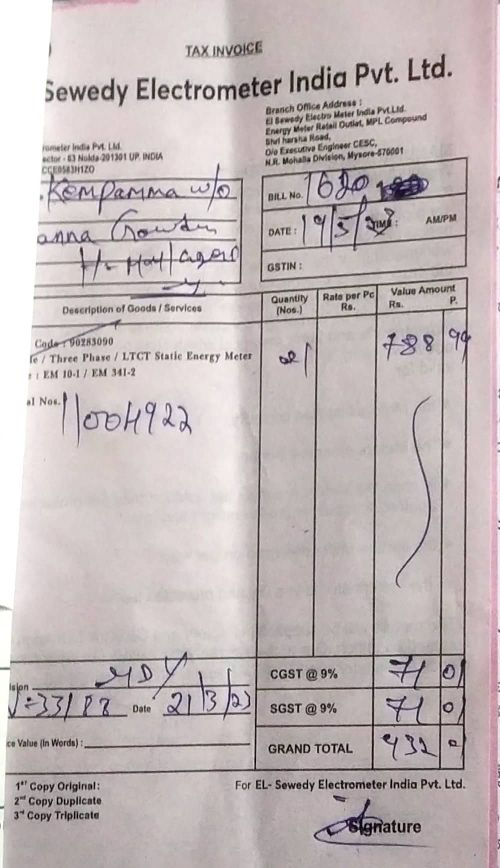 TAX INVOICE
Sewedy Electrometer India Pvt. Ltd.
rometer India Pvt. Ltd.
ector - 63 Noida-201301 UP. INDIA
CCE0583H1ZO
Branch Office Address :
El Sewedy Electro Meter India Pvt.Ltd.
Energy Meter Retail Outlet, MPL Compound
Shri harsha Road,
O/o Executive Engineer CESC,
N.R. Mohalla Division, Mysore-570001
Kempamma w/o
anna Gowda
BILL No. 1620
DATE : 19/5/ TIME : AM/PM
GSTIN :
Description of Goods / Services
Quantity (Nos.)
Rate per Pc Rs.
Value Amount Rs. P.
Code : 90283090
e / Three Phase / LTCT Static Energy Meter
: EM 10-1 / EM 341-2
al Nos.
11004922
788 99
ision MDY
33188 Date 21/3/23
ce Value (In Words) :
CGST @ 9% 71 01
SGST @ 9% 71 01
GRAND TOTAL 932
1st Copy Original:
2nd Copy Duplicate
3rd Copy Triplicate
For EL- Sewedy Electrometer India Pvt. Ltd.
Signature